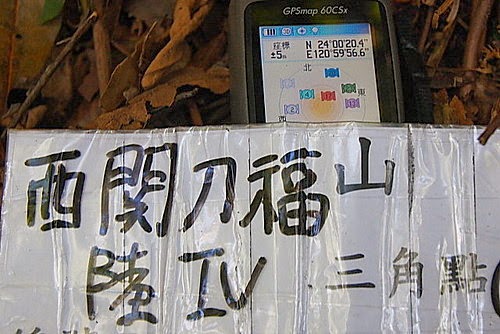 GPSmap 60CSx
座標 N 24°00'20.4"
±5m E 120°59'56.6"
北
東
西
西関刀福山
陸IV 三角點